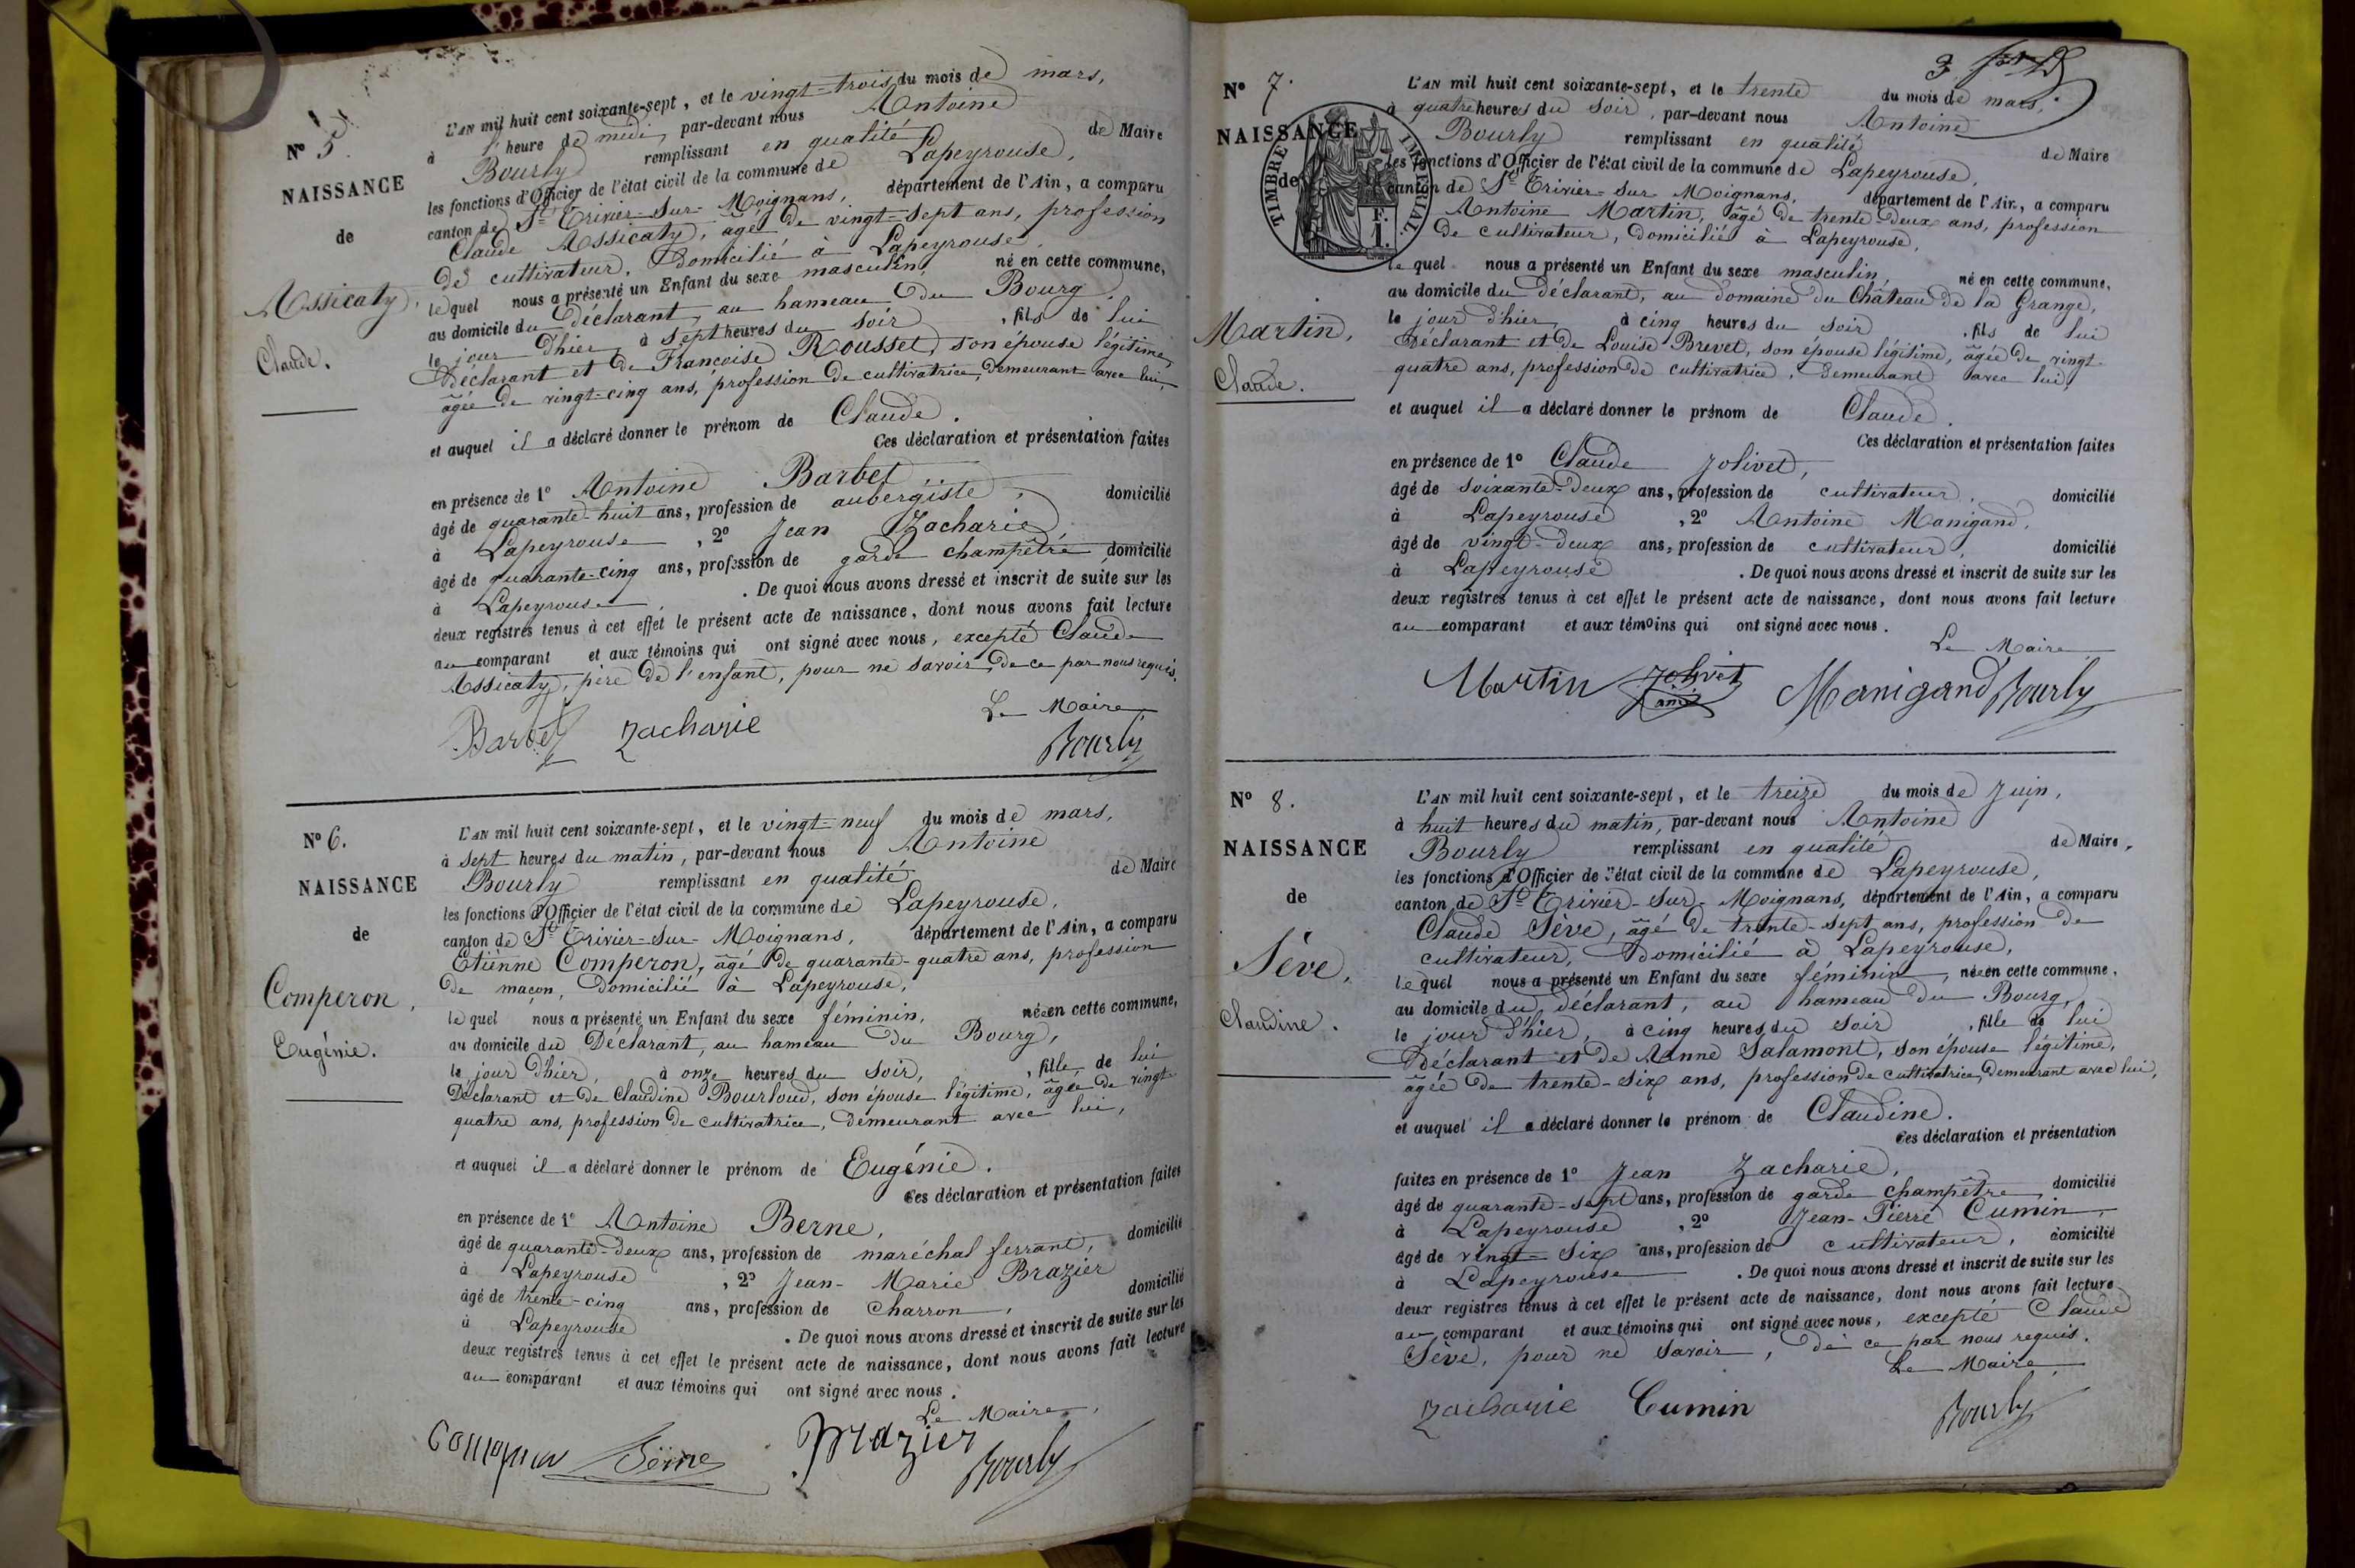 Nº 5.
NAISSANCE
de
Assicaty,
Claude.
L'AN mil huit cent soixante-sept, et le vingt-trois du mois de mars,
à l'heure de midi, par-devant nous Antoine
Bourly remplissant en qualité de Maire
les fonctions d'Officier de l'état civil de la commune de Lapeyrouse,
canton de St Trivier-sur-Moignans, département de l'Ain, a comparu
Claude Assicaty, âgé de vingt-sept ans, profession
de cultivateur, domicilié à Lapeyrouse,
lequel nous a présenté un Enfant du sexe masculin, né en cette commune,
au domicile du déclarant, au hameau du Bourg,
le jour d'hier, à sept heures du soir, fils de lui
Déclarant et de Francoise Rousset, son épouse légitime,
âgée de vingt-cinq ans, profession de cultivatrice, demeurant avec lui,
et auquel il a déclaré donner le prénom de Claude.
Ces déclaration et présentation faites
en présence de 1º Antoine Barbet,
âgé de quarante-huit ans, profession de aubergiste, domicilié
à Lapeyrouse, 2º Jean Zacharie,
âgé de quarante-cinq ans, profession de garde champêtre domicilié
à Lapeyrouse. De quoi nous avons dressé et inscrit de suite sur les
deux registres tenus à cet effet le présent acte de naissance, dont nous avons fait lecture
au comparant et aux témoins qui ont signé avec nous, excepté Claude
Assicaty, père de l'enfant, pour ne savoir, de ce par nous requis.
Le Maire
Barbet Zacharie Bourly
Nº 6.
NAISSANCE
de
Comperon,
Eugénie.
L'AN mil huit cent soixante-sept, et le vingt-neuf du mois de mars,
à sept heures du matin, par-devant nous Antoine
Bourly remplissant en qualité de Maire
les fonctions d'Officier de l'état civil de la commune de Lapeyrouse,
canton de St Trivier-sur-Moignans, département de l'Ain, a comparu
Etiènne Comperon, âgé de quarante-quatre ans, profession
de maçon, domicilié à Lapeyrouse,
lequel nous a présenté un Enfant du sexe féminin, née en cette commune,
au domicile du Déclarant, au hameau du Bourg,
le jour d'hier, à onze heures du soir, fille de lui
Déclarant et de Claudine Bourloud, son épouse légitime, âgée de vingt-
quatre ans, profession de cultivatrice, demeurant avec lui,
et auquel il a déclaré donner le prénom de Eugénie.
Ces déclaration et présentation faites
en présence de 1º Antoine Berne,
âgé de quarante-deux ans, profession de maréchal ferrant, domicilié
à Lapeyrouse, 2º Jean-Marie Brazier
âgé de trente-cinq ans, profession de charron, domicilié
à Lapeyrouse. De quoi nous avons dressé et inscrit de suite sur les
deux registres tenus à cet effet le présent acte de naissance, dont nous avons fait lecture
au comparant et aux témoins qui ont signé avec nous.
Le Maire,
Berne Brazier Bourly
3
Nº 7.
NAISSANCE
de
Martin,
Claude.
TIMBRE IMPERIAL
F. 1.
L'AN mil huit cent soixante-sept, et le trente du mois de mars,
à quatre heures du soir, par-devant nous Antoine
Bourly remplissant en qualité de Maire
les fonctions d'Officier de l'état civil de la commune de Lapeyrouse,
canton de St Trivier-sur-Moignans, département de l'Ain, a comparu
Antoine Martin, âgé de trente-deux ans, profession
de cultivateur, domicilié à Lapeyrouse,
le quel nous a présenté un Enfant du sexe masculin, né en cette commune,
au domicile du déclarant, au domaine du Château de la Grange,
le jour d'hier, à cinq heures du soir, fils de lui
Déclarant et de Louise Brevet, son épouse légitime, âgée de vingt-
quatre ans, profession de cultivatrice, demeurant avec lui,
et auquel il a déclaré donner le prénom de Claude.
Ces déclaration et présentation faites
en présence de 1º Claude Jolivet,
âgé de soixante-deux ans, profession de cultivateur, domicilié
à Lapeyrouse, 2º Antoine Manigand,
âgé de vingt-deux ans, profession de cultivateur, domicilié
à Lapeyrouse. De quoi nous avons dressé et inscrit de suite sur les
deux registres tenus à cet effet le présent acte de naissance, dont nous avons fait lecture
au comparant et aux témoins qui ont signé avec nous.
Le Maire
Martin Jolivet Manigand Bourly
Nº 8.
NAISSANCE
de
Sève,
Claudine.
L'AN mil huit cent soixante-sept, et le treize du mois de Juin,
à huit heures du matin, par-devant nous Antoine
Bourly remplissant en qualité de Maire,
les fonctions d'Officier de l'état civil de la commune de Lapeyrouse,
canton de St Trivier-sur-Moignans, département de l'Ain, a comparu
Claude Sève, âgé de trente-sept ans, profession de
cultivateur, domicilié à Lapeyrouse,
lequel nous a présenté un Enfant du sexe féminin, née en cette commune,
au domicile du déclarant, au hameau du Bourg,
le jour d'hier, à cinq heures du soir, fille de lui
Déclarant et de Anne Salamont, son épouse légitime,
âgée de trente-six ans, profession de cultivatrice, demeurant avec lui,
et auquel il a déclaré donner le prénom de Claudine.
Ces déclaration et présentation
faites en présence de 1º Jean Zacharie,
âgé de quarante-sept ans, profession de garde champêtre, domicilié
à Lapeyrouse, 2º Jean-Pierre Cumin,
âgé de vingt-six ans, profession de cultivateur, domicilié
à Lapeyrouse. De quoi nous avons dressé et inscrit de suite sur les
deux registres tenus à cet effet le présent acte de naissance, dont nous avons fait lecture
au comparant et aux témoins qui ont signé avec nous, excepté Claude
Sève, pour ne savoir, de ce par nous requis.
Le Maire
Zacharie Cumin Bourly